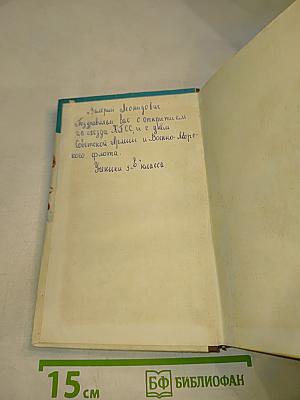 Валерий Леонидович
Поздравляем вас с открытием
26 съезда КПСС, и с днём
Советской Армии и Военно-Морс-
кого флота.
Ученики 3-"В" класса
15 см
БФ БИБЛИОФАН